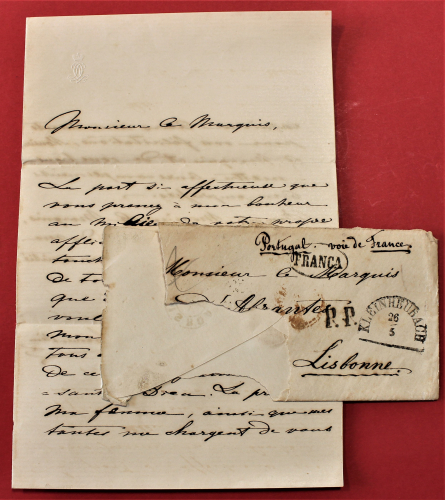 Monsieur le Marquis,
La part si affectueuse que
vous prenez à mon bonheur
au milieu de votre propre
affli
tout
de to
que
voul
mon
tous
de ce
sant Dieu. La pr
Ma femme, ainsi que mes
tantes me chargent de vous
Portugal. voie de France
FRANCA
Monsieur le Marquis
d'Abrantes
P.P.
KLEINHEUBACH
26
5
Lisbonne